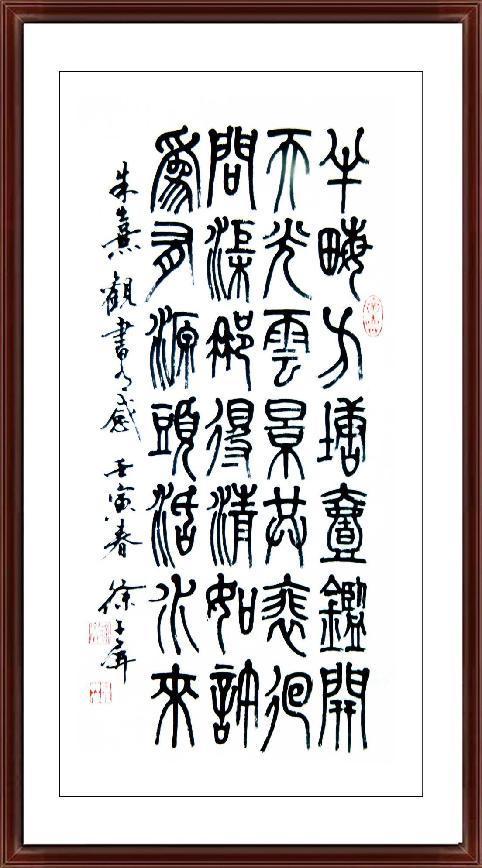 半畮方塘壹鑑開
天光雲景共裵徊
問渠那得清如許
爲有源頭活水來
朱熹觀書有感 壬寅春 徐子屏